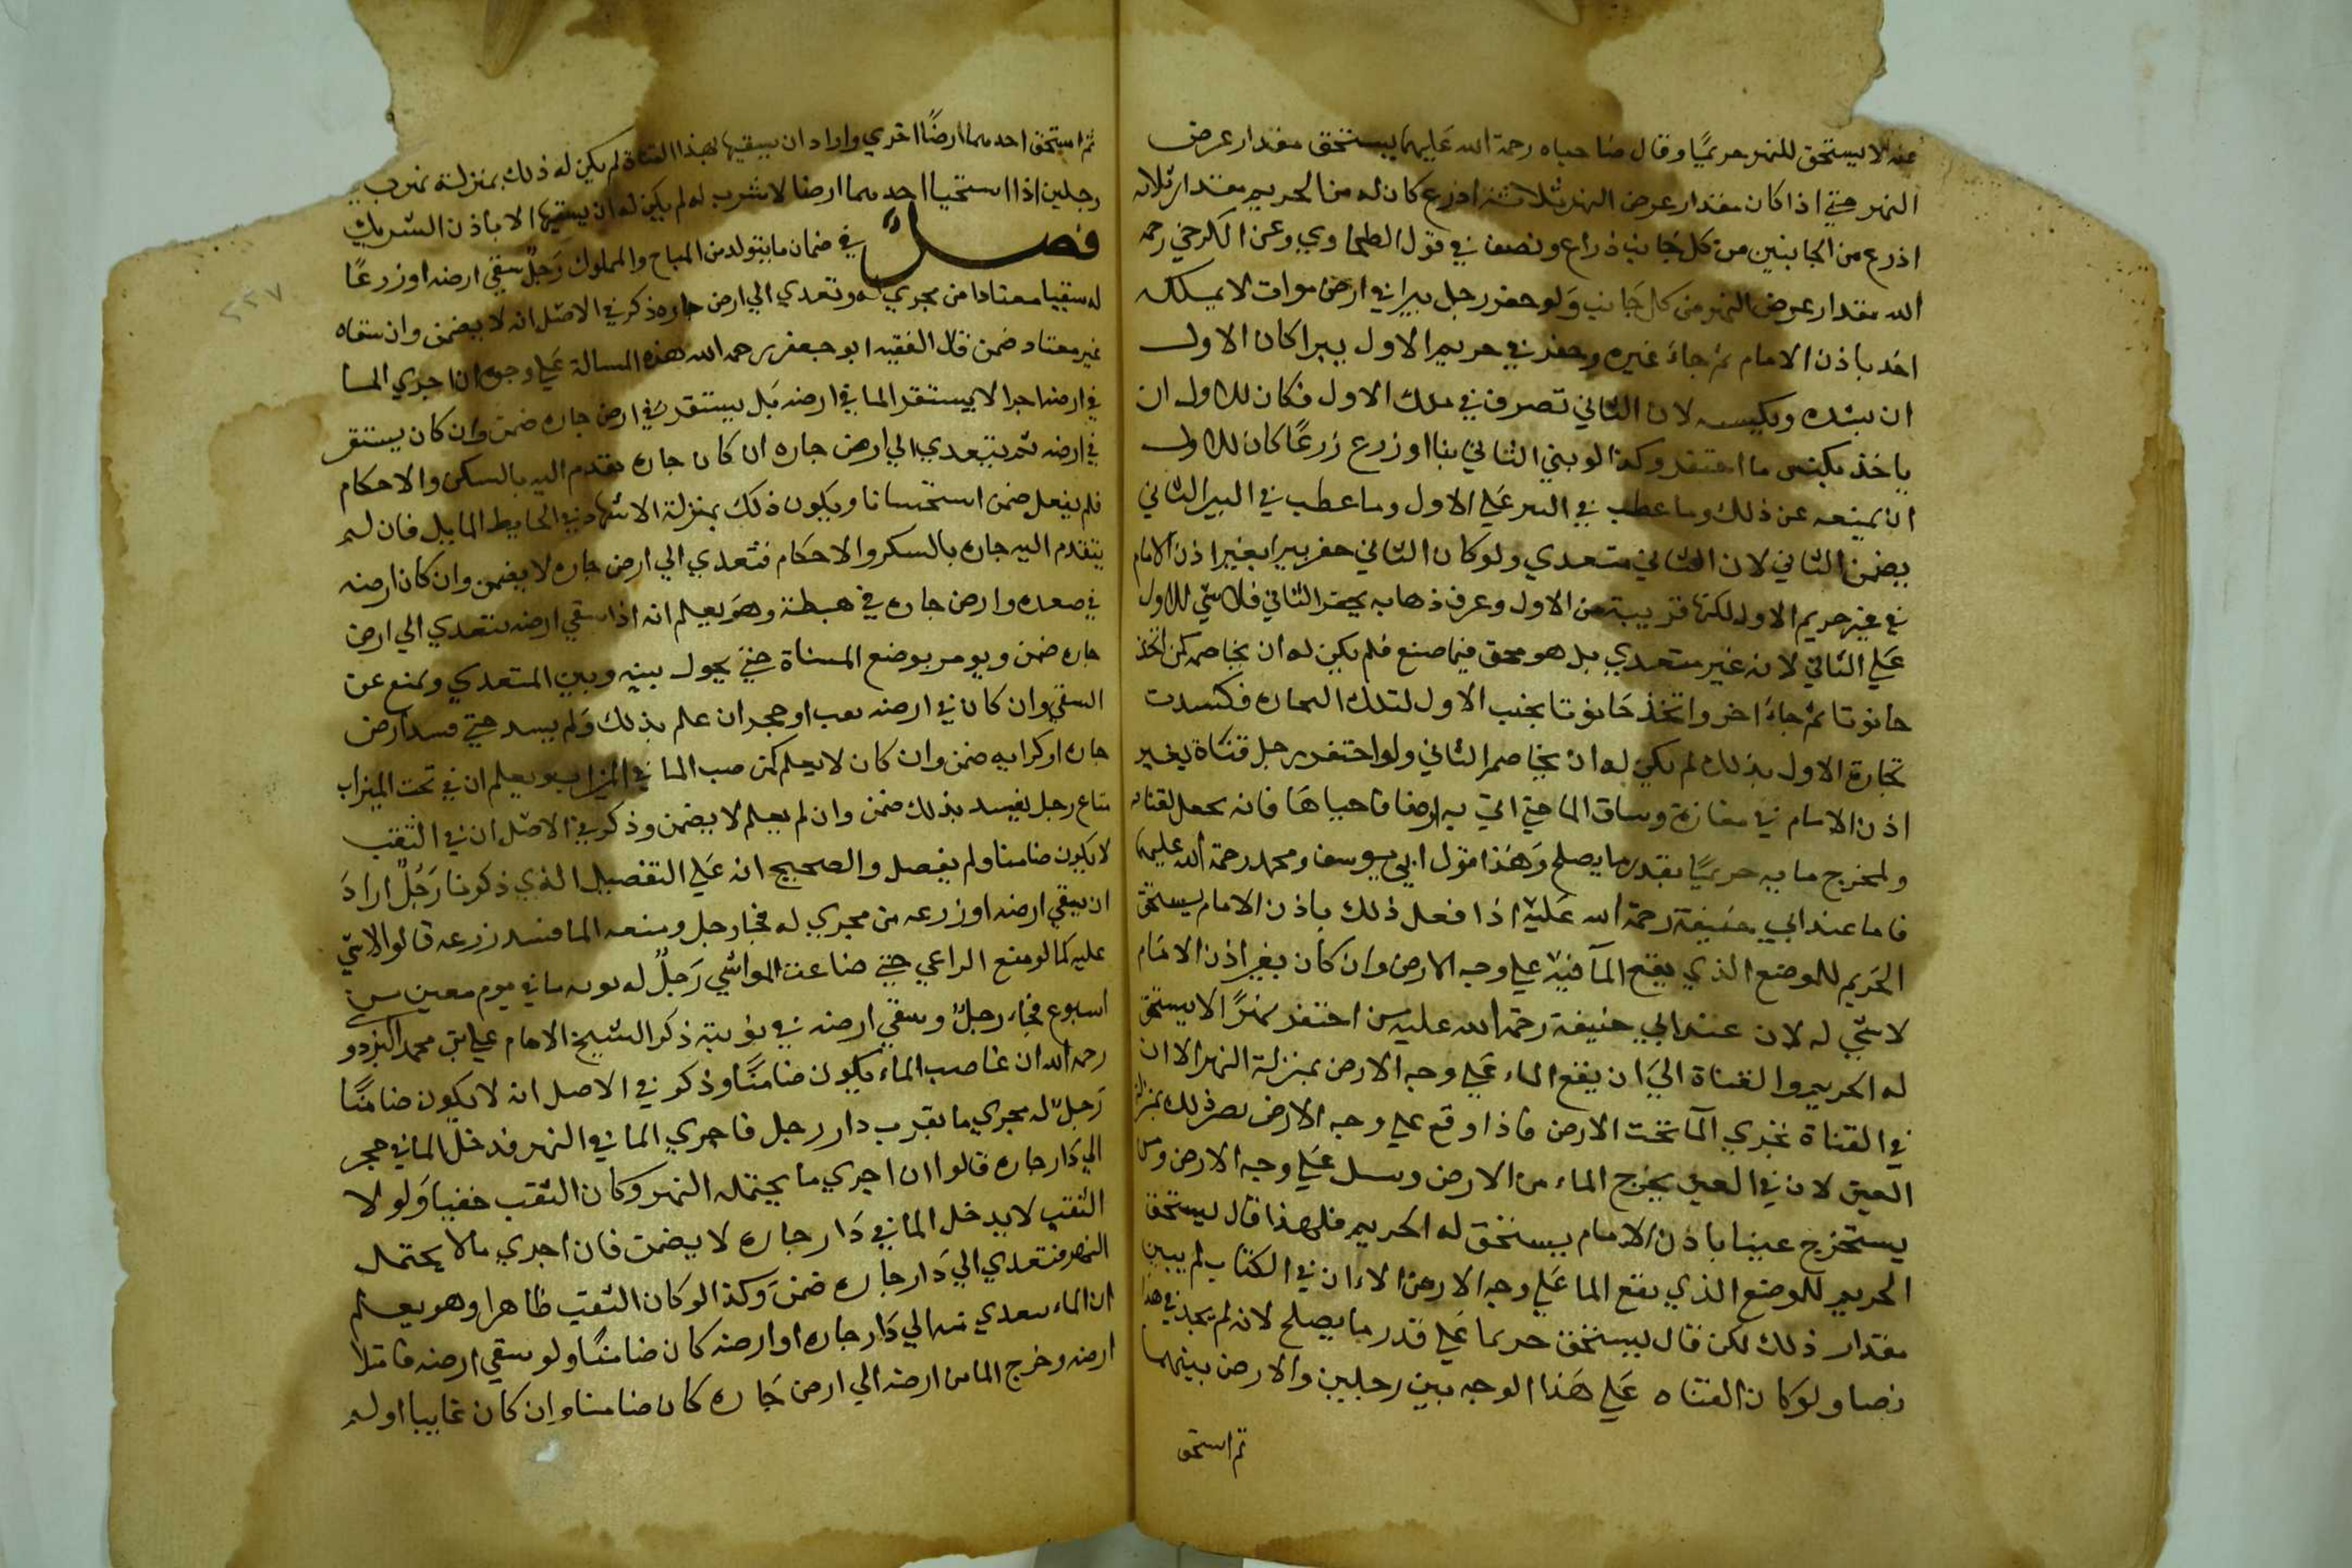 عنه لا يستحق للنهر حريمًا وقال صاحباه رحمة الله عليهما يستحق مقدار عرض
النهر حتي اذا كان مقدار عرض النهر ثلاثة اذرع كان له من الحريم مقدار ثلاثه
اذرع من الجانبين من كل جانب ذراع ونصف في قول الطحاوي وعن الكرخي رحمه
الله مقدار عرض النهر من كل جانب ولو حفر رجل بيرا في ارض موات لا يملكه
احد باذن الامام ثم جاء غيره وحفر في حريم الاول بيرا كان الاول
ان يسده ويكبسه لان الثاني تصرف في ملك الاول فكان للاول ان
ياخذ بكبس ما احتفر وكذا لو بني الثاني بنا او زرع زرعًا كان للاول
ان يمنعه عن ذلك وما عطب في البير علي الاول وما عطب في البير الثاني
يضمن الثاني لان الثاني متعدي ولو كان الثاني حفر بيرا بغير اذن الامام
في غير حريم الاول لكنها قريبة من الاول وعرف ذهابه بحفر الثاني فلا شي للاول
علي الثاني لانه غير متعدي بل هو محق فيما صنع فلم يكن له ان يخاصمه كمن اتخذ
حانوتا ثم جاء اخر واتخذ حانوتا بجنب الاول لتلك التجاره فكسدت
تجارة الاول بذلك لم يكن له ان يخاصم الثاني ولو احتفر رجل قناة بغير
اذن الامام في مفازة وساق الما حتي اتي به ارضا فاحياها فانه يجعل لقناته
ولمخرج مايه حريمًا بقدر ما يصلح وهذا قول ابي يوسف ومحمد رحمة الله عليهما
فاما عند ابي حنيفة رحمة الله عليه اذا فعل ذلك باذن الامام يستحق
الحريم للموضع الذي يقع الماء فيه علي وجه الارض وان كان بغير اذن الامام
لا شي له لان عند ابي حنيفة رحمه الله عليه من احتفر نهرًا لا يستحق
له الحريم والقناة الي ان يقع الماء علي وجه الارض بمنزلة النهر الا ان
في القناة يجري الماء تحت الارض فاذا وقع علي وجه الارض يصير ذلك بمنزلة
العين لان في العين يخرج الماء من الارض ويسيل علي وجه الارض ومن
يستخرج عينا باذن الامام يستحق له الحريم فلهذا قال يستحق
الحريم للموضع الذي يقع الما علي وجه الارض الا ان في الكتاب لم يبين
مقدار ذلك لكن قال يستحق حريما علي قدر ما يصلح لانه لم يجد في هذا
نصا ولو كان القناه علي هذا الوجه بين رجلين والارض بينهما
ثم استحق
ثم استحق احدهما ارضًا اخري واراد ان يسقيها بهذا القناة لم يكن له ذلك بمنزلة نهر بين
رجلين اذا استحيا احدهما ارضا لا شرب له لم يكن له ان يسقيها الا باذن الشريك
فصل في ضمان ما يتولد من المباح والمملوك رجل سقي ارضه او زرعًا
له سقيا معتادا من مجري له وتعدي الي ارض جاره ذكر في الاصل انه لا يضمن وان سقاه
غير معتاد ضمن قال الفقيه ابو جعفر رحمه الله هذه المسالة علي وجوه ان اجري الما
في ارضه اجرا لا يستقر الما في ارضه بل يستقر في ارض جاره ضمن وان كان يستقر
في ارضه ثم يتعدي الي ارض جاره ان كان جاره تقدم اليه بالسكر والاحكام
فلم يفعل ضمن استحسانا ويكون ذلك بمنزلة الاشهاد في الحايط المايل فان لم
يتقدم اليه جاره بالسكر والاحكام فتعدي الي ارض جاره لا يضمن وان كان ارضه
في صعده وارض جاره في هبطة وهو يعلم انه اذا سقي ارضه يتعدي الي ارض
جاره ضمن ويومر بوضع المسناة حتي يحول بينه وبين المتعدي ويمنع عن
السقي وان كان في ارضه ثقب او جحر ان علم بذلك ولم يسد حتي فسد ارض
جاره او كرابه ضمن وان كان لا يعلم كمن صب الما في الميزاب ويعلم ان في تحت الميزاب
متاع رجل يفسد بذلك ضمن وان لم يعلم لا يضمن وذكر في الاصل ان في الثقب
لا يكون ضامنا ولم يفصل والصحيح انه علي التفصيل الذي ذكرنا رجل اراد
ان يسقي ارضه او زرعه من مجري له فجا رجل ومنعه الما ففسد زرعه قالوا لا شي
عليه كما لو منع الراعي حتي ضاعت المواشي رجل له نوبه ما في يوم معين من
اسبوع فجاء رجل وسقي ارضه في نوبته ذكر الشيخ الامام علي بن محمد البزدو
رحمه الله ان غاصب الماء يكون ضامنًا وذكر في الاصل انه لا يكون ضامنًا
رجل له مجري ما بقرب دار رجل فاجري الما في النهر فدخل الما في جحر
الي دار جاره قالوا ان اجري ما يحتمله النهر وكان الثقب خفيا ولولا
الثقب لا يدخل الما في دار جاره لا يضمن فان اجري مالا يحتمل
النهر فتعدي الي دار جاره ضمن وكذا لو كان الثقب ظاهرا وهو يعلم
ان الماء يتعدي منه الي دار جاره او ارضه كان ضامنًا ولو سقي ارضه فامتلا
ارضه وخرج الما من ارضه الي ارض جاره كان ضامنا وان كان غايبا او لم